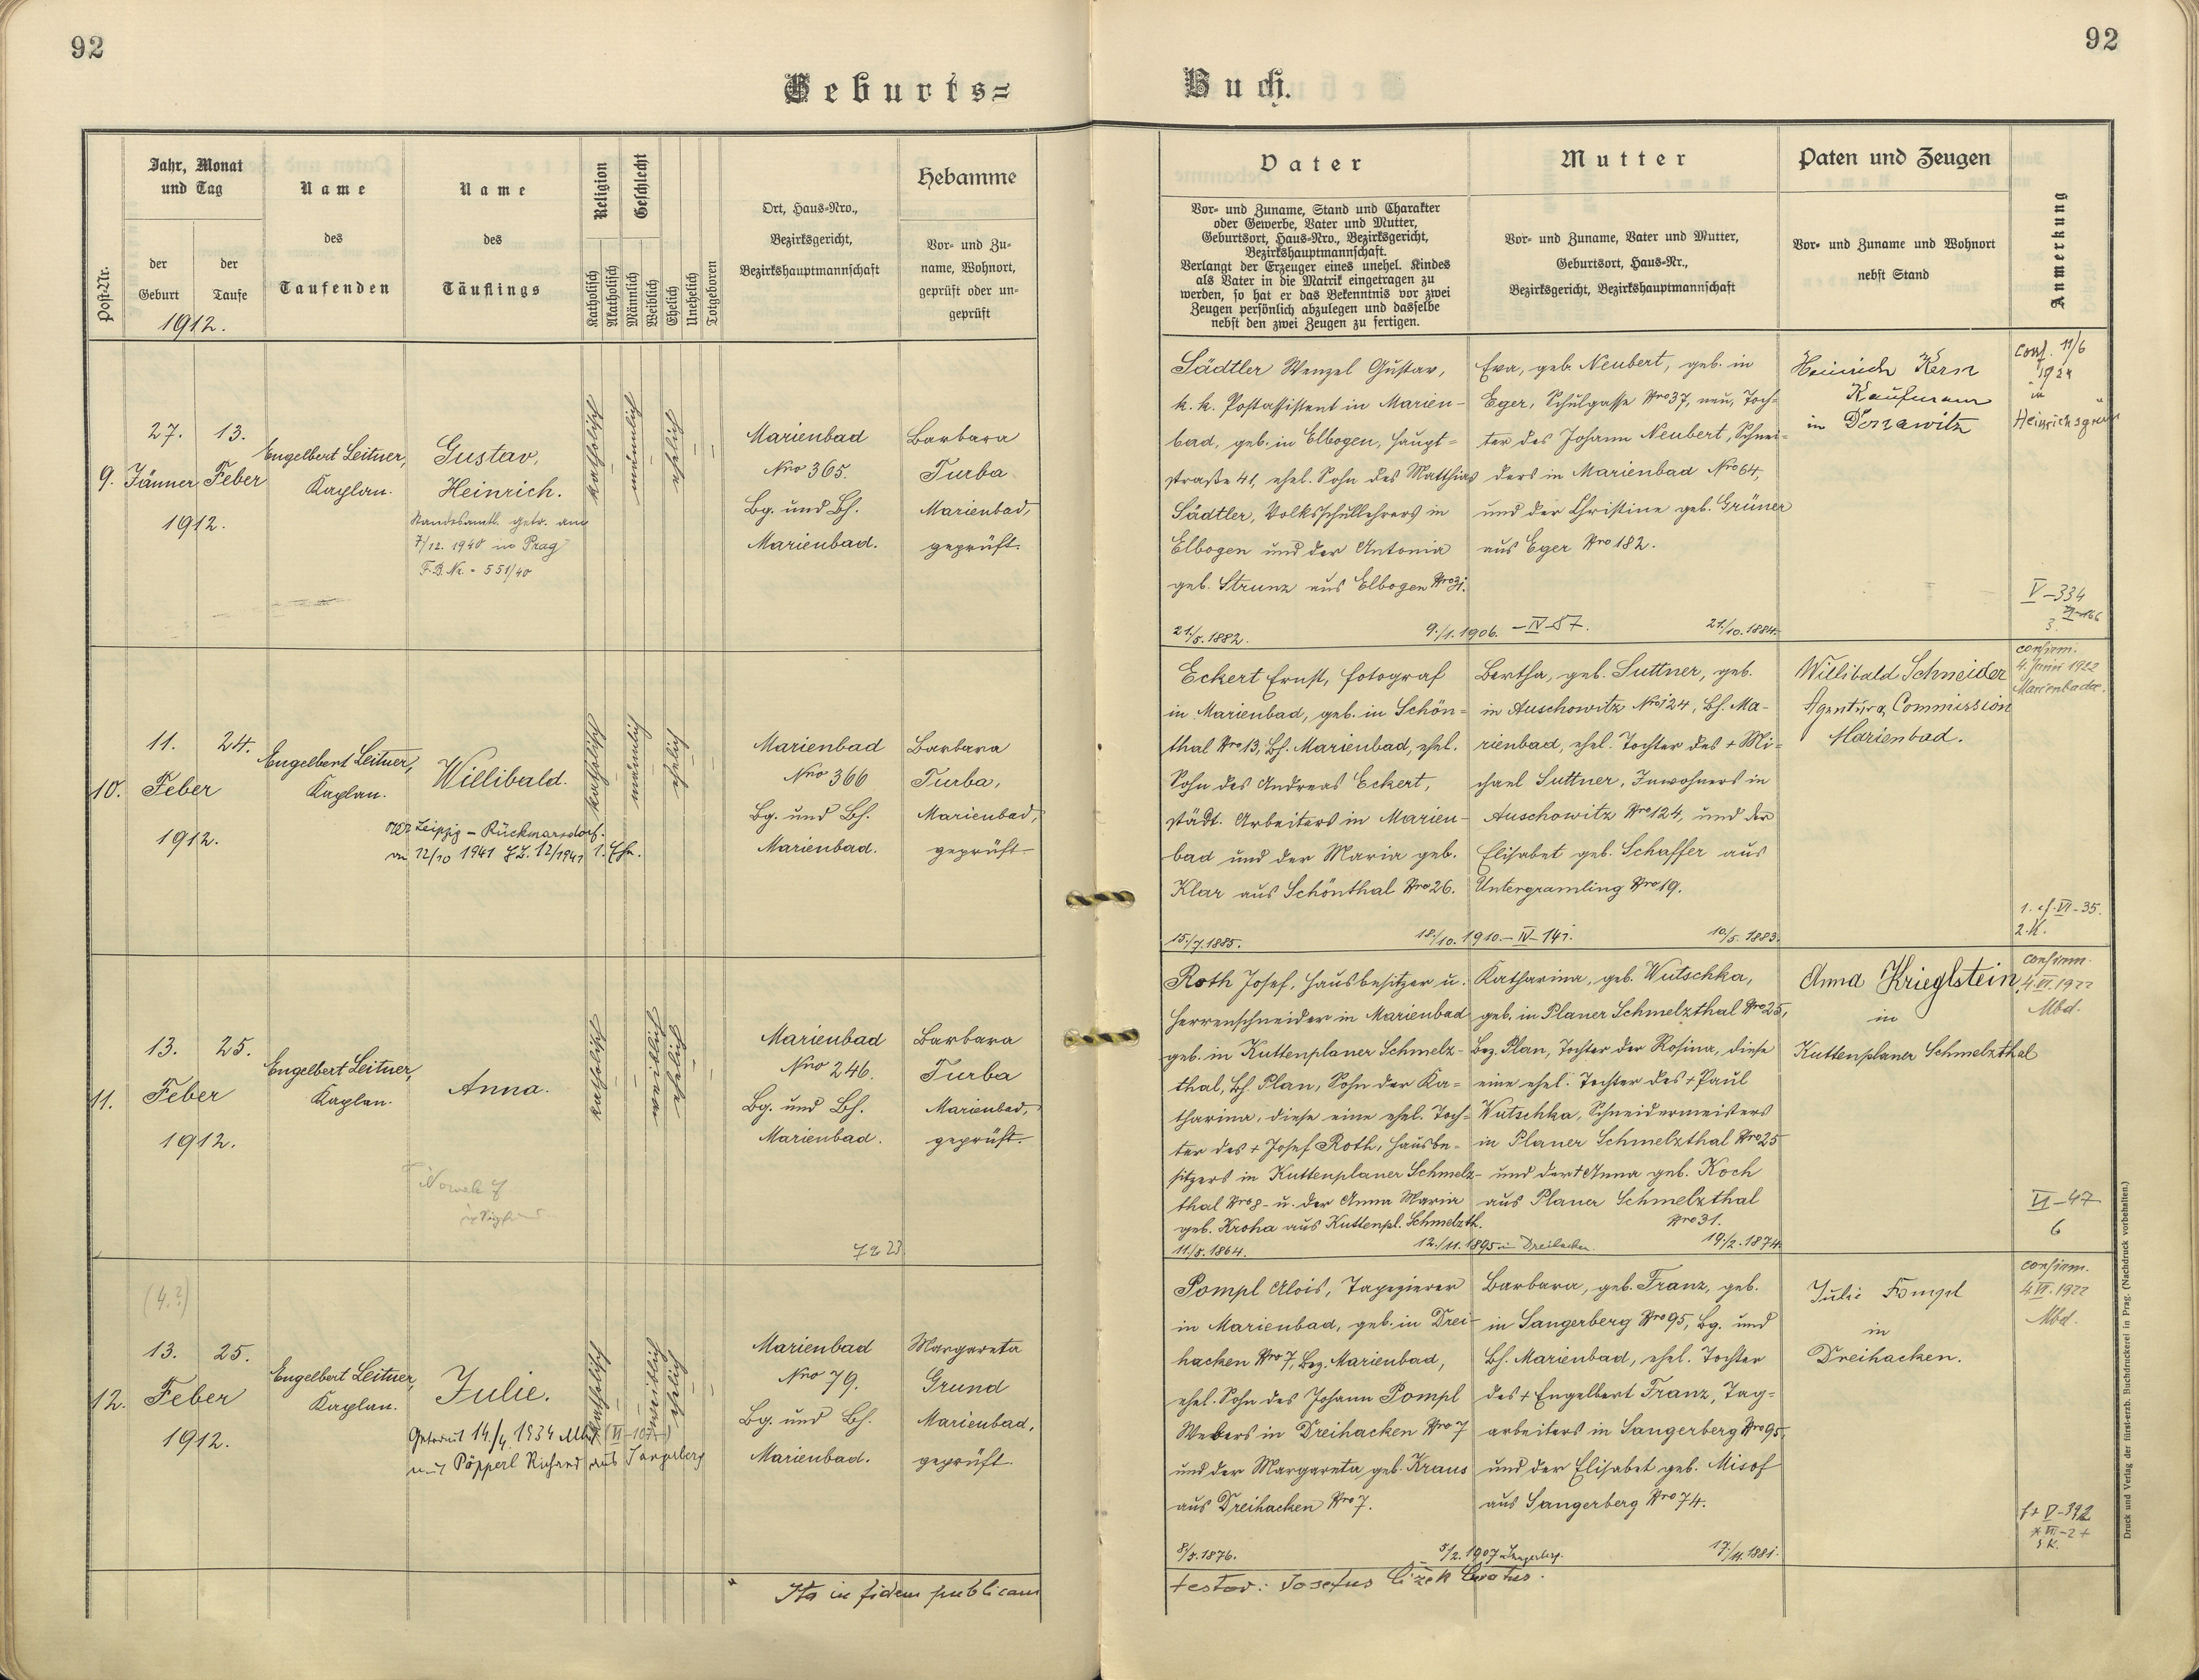 92
92
Geburts=
Buch.
Jahr, Monat
und Tag
der
Geburt
der
Taufe
1912.
Post-Nr.
Name
des
Taufenden
Name
des
Täuflings
Religion
Katholisch
Akatholisch
Geschlecht
Männlich
Weiblich
Ehelich
Unehelich
Totgeboren
Ort, Haus-Nro.,
Bezirksgericht,
Bezirkshauptmannschaft
Hebamme
Vor- und Zu-
name, Wohnort,
geprüft oder un-
geprüft
Vater
Vor- und Zuname, Stand und Charakter
oder Gewerbe, Vater und Mutter,
Geburtsort, Haus-Nro., Bezirksgericht,
Bezirkshauptmannschaft.
Verlangt der Erzeuger eines unehel. Kindes
als Vater in die Matrik eingetragen zu
werden, so hat er das Bekenntnis vor zwei
Zeugen persönlich abzulegen und dasselbe
nebst den zwei Zeugen zu fertigen.
Mutter
Vor- und Zuname, Vater und Mutter,
Geburtsort, Haus-Nr.,
Bezirksgericht, Bezirkshauptmannschaft
Paten und Zeugen
Vor- und Zuname und Wohnort
nebst Stand
Anmerkung
9.
27. 13.
Jänner Feber
1912.
Engelbert Leitner,
Kaplan.
Gustav,
Heinrich.
Standesamtl. getr. am
7/12. 1940 in Prag
F.B. Nr. - 551/40
katholisch
männlich
ehelich
Marienbad
Nro 365.
Bg. und Bh.
Marienbad.
Barbara
Turba
Marienbad,
geprüft.
Sädtler Wenzel Gustav,
k. k. Postassistent in Marien-
bad, geb. in Elbogen, Haupt=
straße 41, ehel. Sohn des Matthias
Sädtler, Volksschullehrers in
Elbogen und der Antonia
geb. Strunz aus Elbogen Nro 31.
21./5. 1882.
9./1. 1906. - IV-57.
Eva, geb. Neubert, geb. in
Eger, Schulgasse Nro 37, neu, Toch=
ter des Johann Neubert, Schnei=
ders in Marienbad Nro 64,
und der Christine geb. Grüner
aus Eger Nro 182.
21./10. 1884.
Heinrich Kern
Kaufmann
in
Conf. 11/6
1924
in
V-334
3.
10.
11. 24.
Feber
1912.
Engelbert Leitner,
Kaplan.
Willibald.
Leipzig - Rückmarsdorf.
12/10 1941 12/1941
katholisch
männlich
ehelich
Marienbad
Nro 366
Bg. und Bh.
Marienbad.
Barbara
Turba,
Marienbad,
geprüft
Eckert Ernst, Fotograf
in Marienbad, geb. in Schön=
thal Nro 13, Bh. Marienbad, ehel.
Sohn des Andreas Eckert,
städt. Arbeiters in Marien-
bad und der Maria geb.
Klar aus Schönthal Nro 26.
15./7. 1885.
18./10. 1910. - IV-141.
Bertha, geb. Suttner, geb.
in Auschowitz Nro 124, Bh. Ma-
rienbad, ehel. Tochter des + Mi=
chael Suttner, Inwohners in
Auschowitz Nro 124, und der
Elisabet geb. Schaffer aus
Untergramling Nro 19.
10/5. 1883.
Willibald Schneider
Agentur & Commission
Marienbad.
confirm.
4. Juni 1922
VI-35.
2. K.
11.
13. 25.
Feber
1912.
Engelbert Leitner,
Kaplan.
Anna.
katholisch
weiblich
ehelich
Marienbad
Nro 246.
Bg. und Bh.
Marienbad.
Barbara
Turba
Marienbad,
geprüft.
Roth Josef, Hausbesitzer u.
Herrenschneider in Marienbad
geb. in Kuttenplaner Schmelz-
thal, Bh. Plan, Sohn der Ka=
tharina, diese eine ehel. Toch=
ter des + Josef Roth, Hausbe-
sitzers in Kuttenplaner Schmelz-
thal Nro 8 - u. der Anna Maria
geb. Kroha aus Kuttenpl. Schmelzth.
11./5. 1864.
12./11. 1895 in Dreihacken.
Katharina, geb. Wutschka,
geb. in Planer Schmelzthal Nro 25,
Bez. Plan, Tochter der Rosina, diese
eine ehel. Tochter des + Paul
Wutschka, Schneidermeisters
in Planer Schmelzthal Nro 25
und der + Anna geb. Koch
aus Planer Schmelzthal
Nro 31.
19./2. 1874.
Anna Krieglstein
in
Kuttenplaner Schmelzthal
confirm.
4. VI. 1922
Mbd.
VI-47
6
12.
(4.?)
13. 25.
Feber
1912.
Engelbert Leitner,
Kaplan.
Julie.
Getraut 14./4. 1934 Mbd (VI-107)
mit Pöpperl Richard aus Sangerberg
katholisch
weiblich
ehelich
Marienbad
Nro 79.
Bg. und Bh.
Marienbad.
Margareta
Grund
Marienbad,
geprüft.
Pompl Alois, Tapezierer
in Marienbad, geb. in Drei-
hacken Nro 7, Bez. Marienbad,
ehel. Sohn des Johann Pompl
Webers in Dreihacken Nro 7
und der Margareta geb. Kraus
aus Dreihacken Nro 7.
8/5. 1876.
5/2. 1907 in Sangerberg.
Barbara, geb. Franz, geb.
in Sangerberg Nro 95, Bg. und
Bh. Marienbad, ehel. Tochter
des + Engelbert Franz, Tag=
arbeiters in Sangerberg Nro 95,
und der Elisabet geb. Misof
aus Sangerberg Nro 74.
17./11. 1881.
Julie Pompl
in
Dreihacken.
confirm.
4. VI. 1922
Mbd.
V-392
Ita in fidem publicam
testor: Josefus Cizek Curatus.
Druck und Verlag der fürst-erzb. Buchdruckerei in Prag. (Nachdruck vorbehalten.)